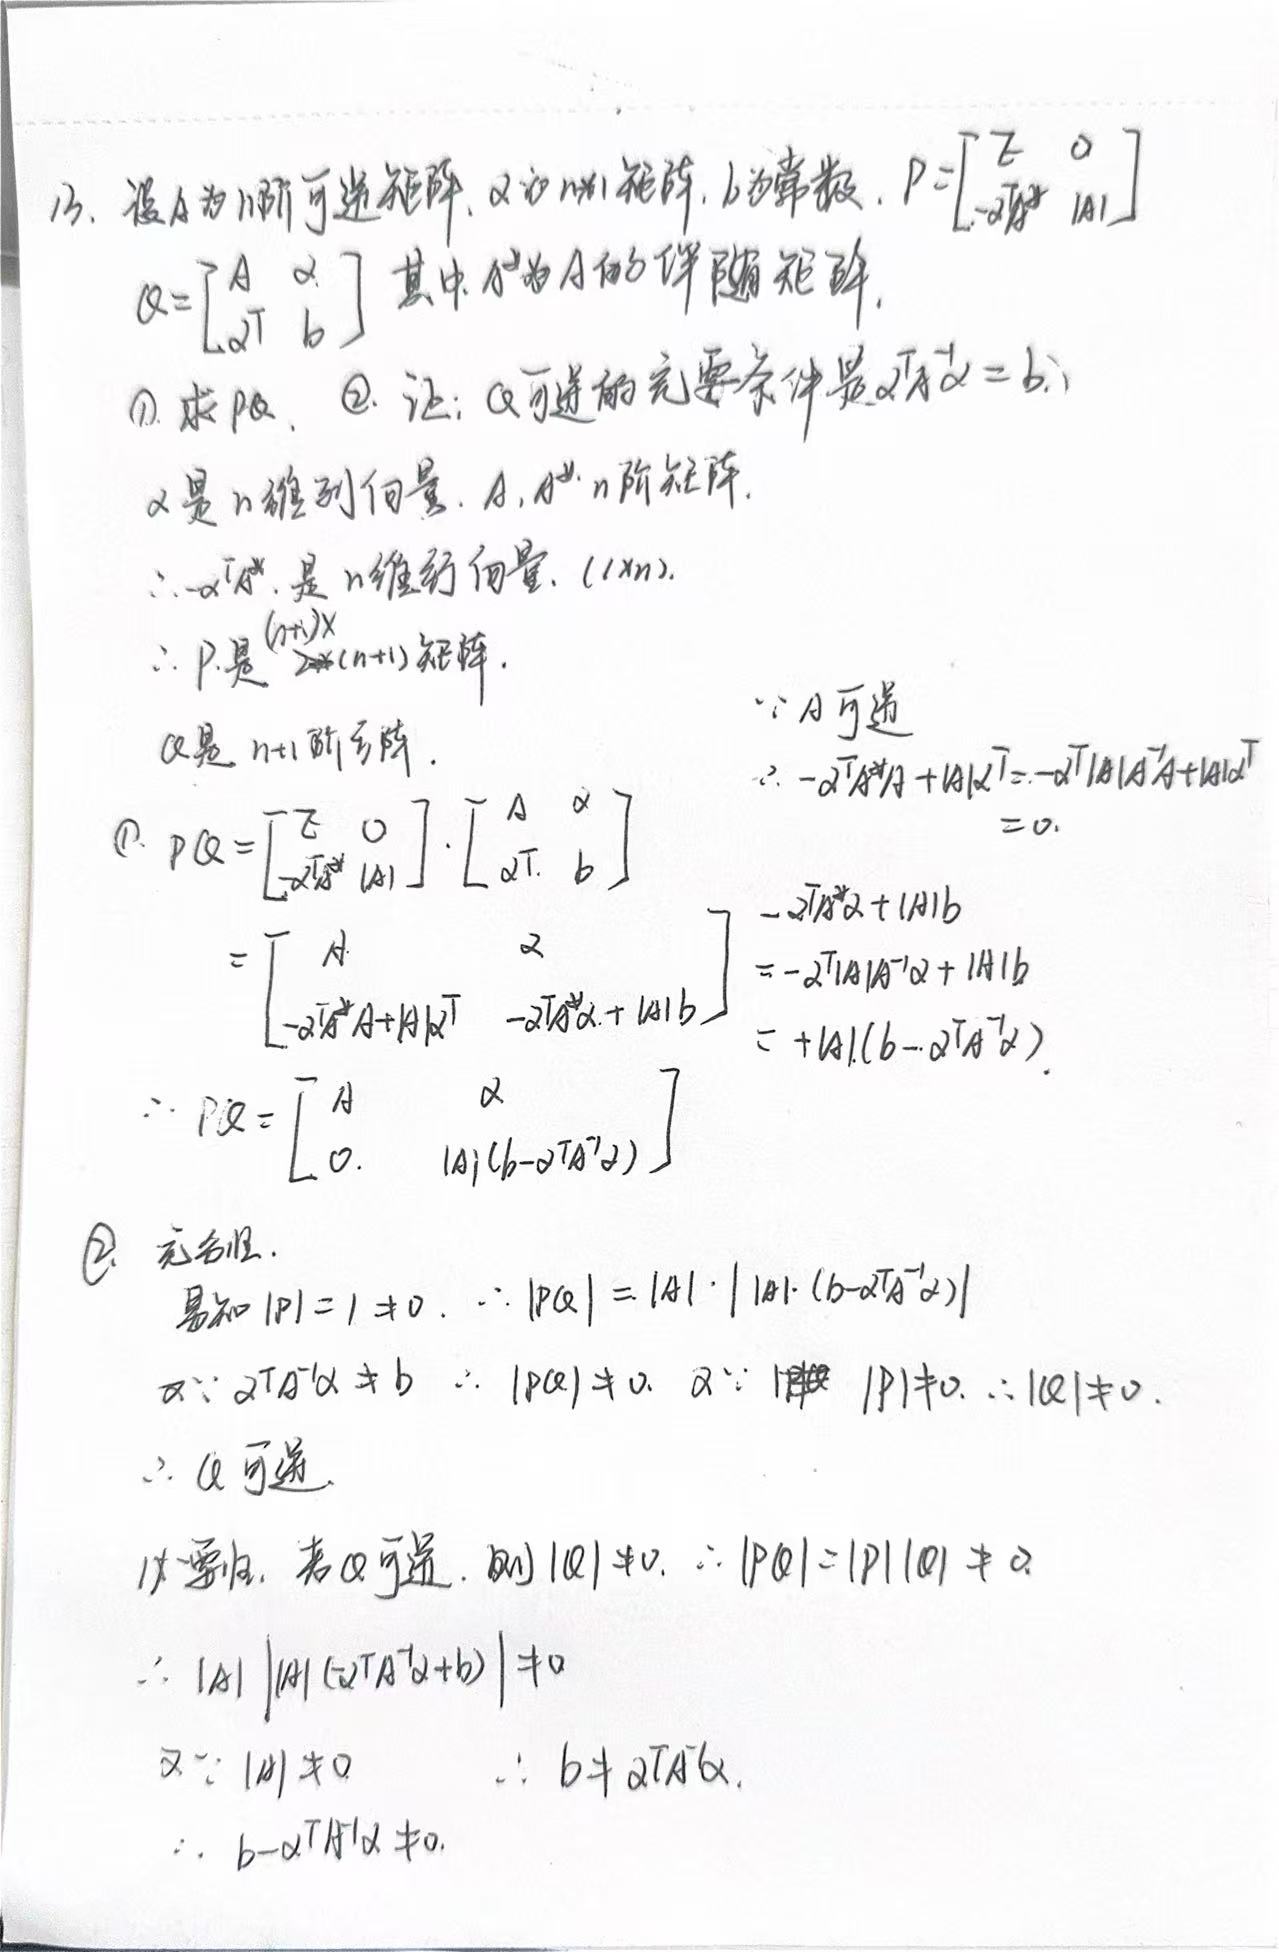 13. 设A为n阶可逆矩阵, α为n×1矩阵, b为常数. P=[E 0; -αᵀA* |A|]
Q=[A α; αᵀ b] 其中A*为A的伴随矩阵.
①. 求PQ. ②. 证: Q可逆的充要条件是αᵀA⁻¹α=b;
α是n维列向量. A, A* n阶矩阵.
∴ -αᵀA* 是n维行向量. (1×n).
∴ P是(n+1)×(n+1)矩阵.
Q是 n+1阶方阵.
①. PQ=[E 0; -αᵀA* |A|]·[A α; αᵀ b]
=[A α; -αᵀA*A+|A|αᵀ -αᵀA*α+|A|b]
∴ PQ=[A α; 0 |A|(b-αᵀA⁻¹α)]
∵ A可逆
∴ -αᵀA*A+|A|αᵀ=-αᵀ|A|A⁻¹A+|A|αᵀ
=0.
-αᵀA*α+|A|b
=-αᵀ|A|A⁻¹α+|A|b
=+|A|.(b-αᵀA⁻¹α).
②. 充分性.
易知|P|=1≠0. ∴ |PQ|=|A|·||A|·(b-αᵀA⁻¹α)|
又∵ αᵀA⁻¹α≠b ∴ |PQ|≠0. 又∵ |P|≠0. ∴ |Q|≠0.
∴ Q可逆.
必要性. 若Q可逆. 则|Q|≠0. ∴ |PQ|=|P||Q|≠0.
∴ |A|||A|(-αᵀA⁻¹α+b)|≠0
又∵ |A|≠0 ∴ b≠αᵀA⁻¹α.
∴ b-αᵀA⁻¹α≠0.